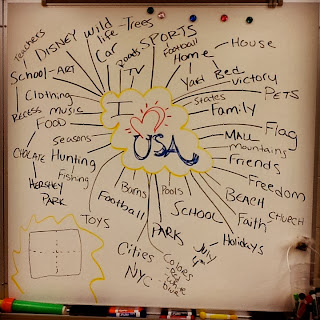 Teachers
DISNEY
Wild life
Trees
SPORTS
Car
Boats
TV
Football
Home
HOUSE
School
ART
Yard
Bed
victory
PETS
Clothing
RECESS
MUSIC
I
States
Family
FOOD
Flag
Seasons
USA
MALL
mountains
CHOCATE
Hunting
Friends
Fishing
HERSHEY PARK
Freedom
Barns
Pools
BEACH
CHURCH
Football
SCHOOL
Faith
TOYS
PARK
July 4th
Holidays
Cities
Colors
Red
White
Blue
NYC